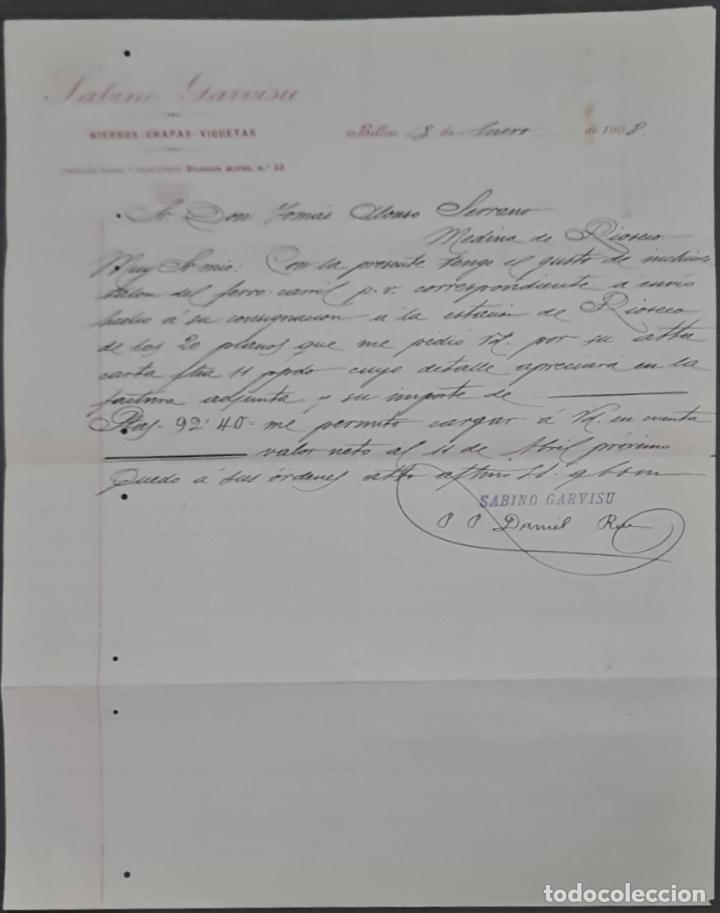 Sabino Garvisu
HIERROS-CHAPAS-VIGUETAS
Buenos Aires, n.º 12
Bilbao 13 de Enero de 1908.
Sr. Don Tomás Alonso Serrano
Medina de Rioseco
Muy Sr mio: Con la presente tengo el gusto de incluirle
talon del ferro-carril p.v. correspondiente a envio
hecho á su consignacion a la estacion de Rioseco
de los 20 planos que me pidió Vd. por su atta
carta fha 11 ppdo cuyo detalle apreciará en la
factura adjunta y su importe de
Ptas. 92'40= me permito cargar á Vd. en cuenta
valor neto al 11 de Abril próximo
Quedo á sus órdenes atto afmo S.S. q b s m
SABINO GARVISU
P P Daniel
todocoleccion
todocoleccion.net